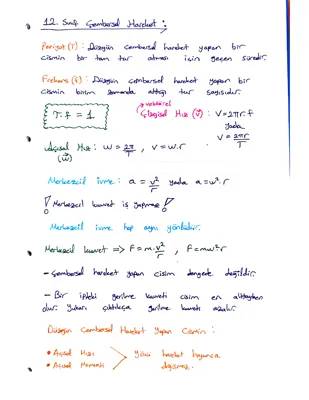 12. Sınıf Çembersel Hareket :
Periyot (T) : Düzgün çembersel hareket yapan bir
cismin bir tam tur atması için geçen süredir.
Frekans (f) : Düzgün çembersel hareket yapan bir
cismin birim zamanda attığı tur sayısıdır.
T.f = 1
→ vektörel
Çizgisel Hız (v⃗) : V=2πr.f
yada
V = 2πr/T
Açısal Hız : w = 2π/T , v = w.r
(w⃗)
Merkezcil ivme : a = v²/r yada a=w².r
! Merkezcil kuvvet iş yapmaz !
Merkezcil ivme hep aynı yönlüdür.
Merkezcil kuvvet => F = m.v²/r , F=mw²r
- Çembersel hareket yapan cisim dengede değildir.
- Bir ipteki gerilme kuvveti cisim en alttayken
dur. Yukarı çıktıkça gerilme kuvveti azalır.
Düzgün Çembersel Hareket Yapan Cismin :
• Açısal Hızı
• Açısal Momenti
hareket boyunca
değişmez.